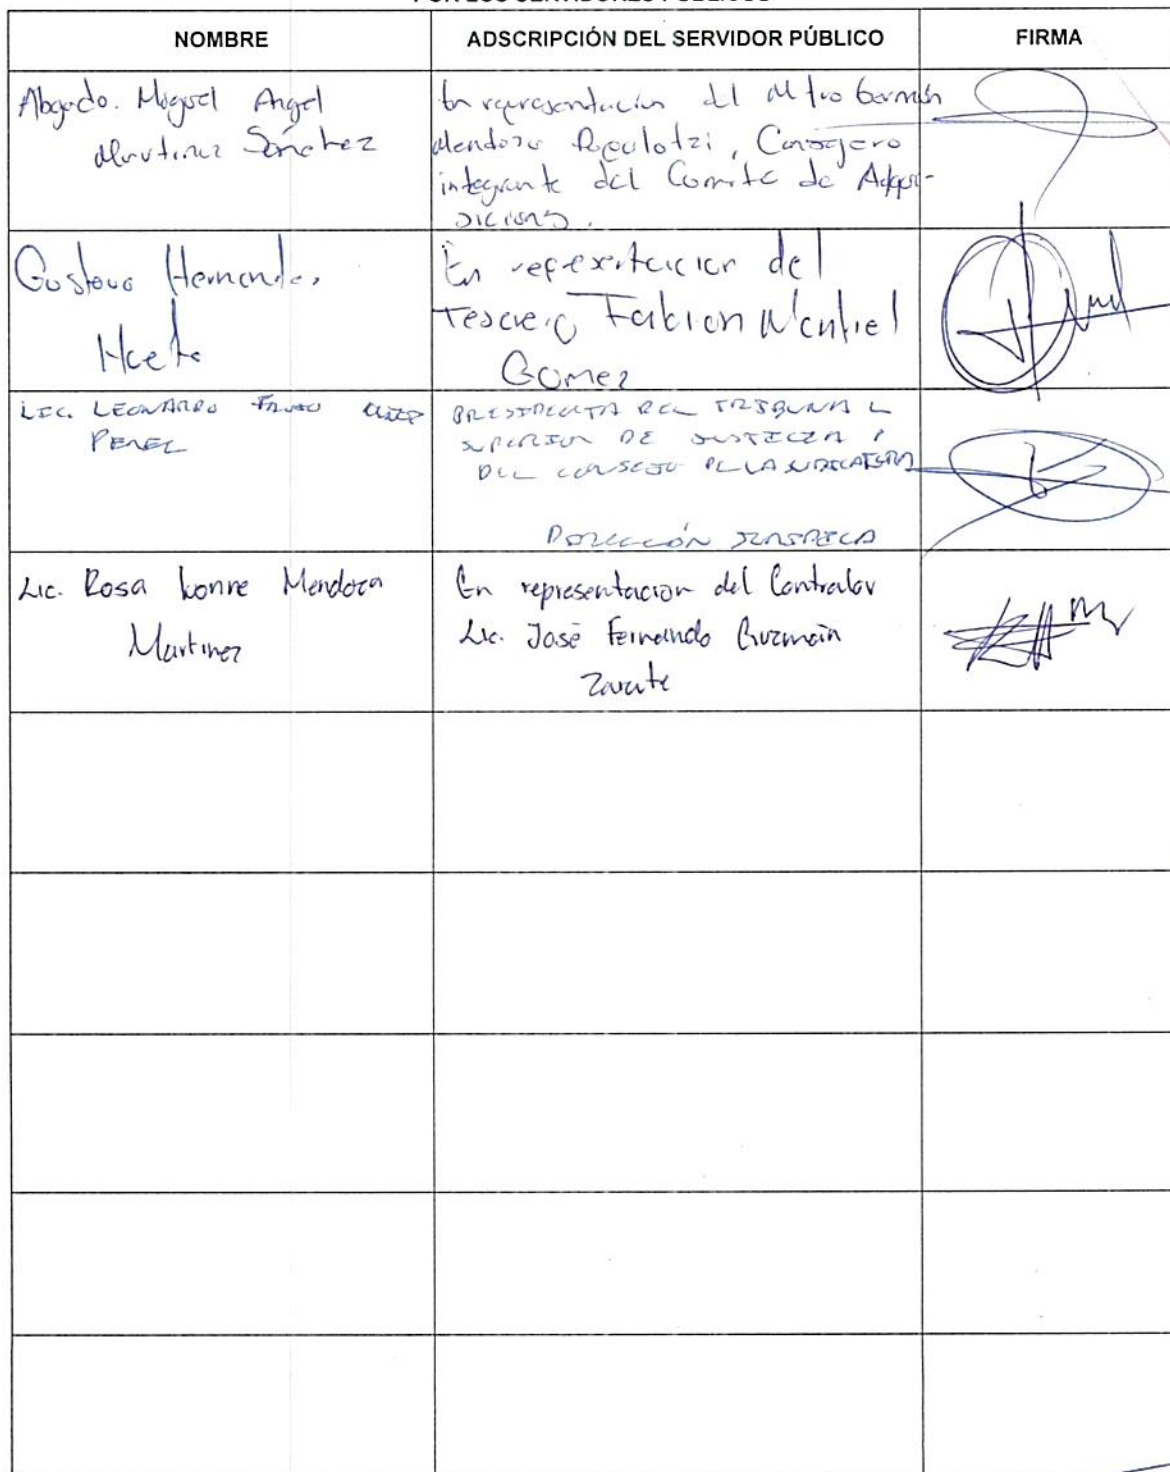 POR LOS SERVIDORES PÚBLICOS
NOMBRE
ADSCRIPCIÓN DEL SERVIDOR PÚBLICO
FIRMA
Abogado. Miguel Angel
Martinez Sánchez
En representación del Mtro Germán
Mendoza, Consejero
integrante del Comite de Adqui-
siciones.
Gustavo Hernandez
En representacion del
Tesorero Fabian Montiel
Gomez
LIC. LEONARDO
PEREZ
PRESIDENCIA DEL TRIBUNAL
SUPERIOR DE JUSTICIA Y
DEL CONSEJO DE LA JUDICATURA
DIRECCIÓN JURIDICA
Lic. Rosa Ivonne Mendoza
Martinez
En representacion del Contralor
Lic. José Fernando Guzmán
Zarate